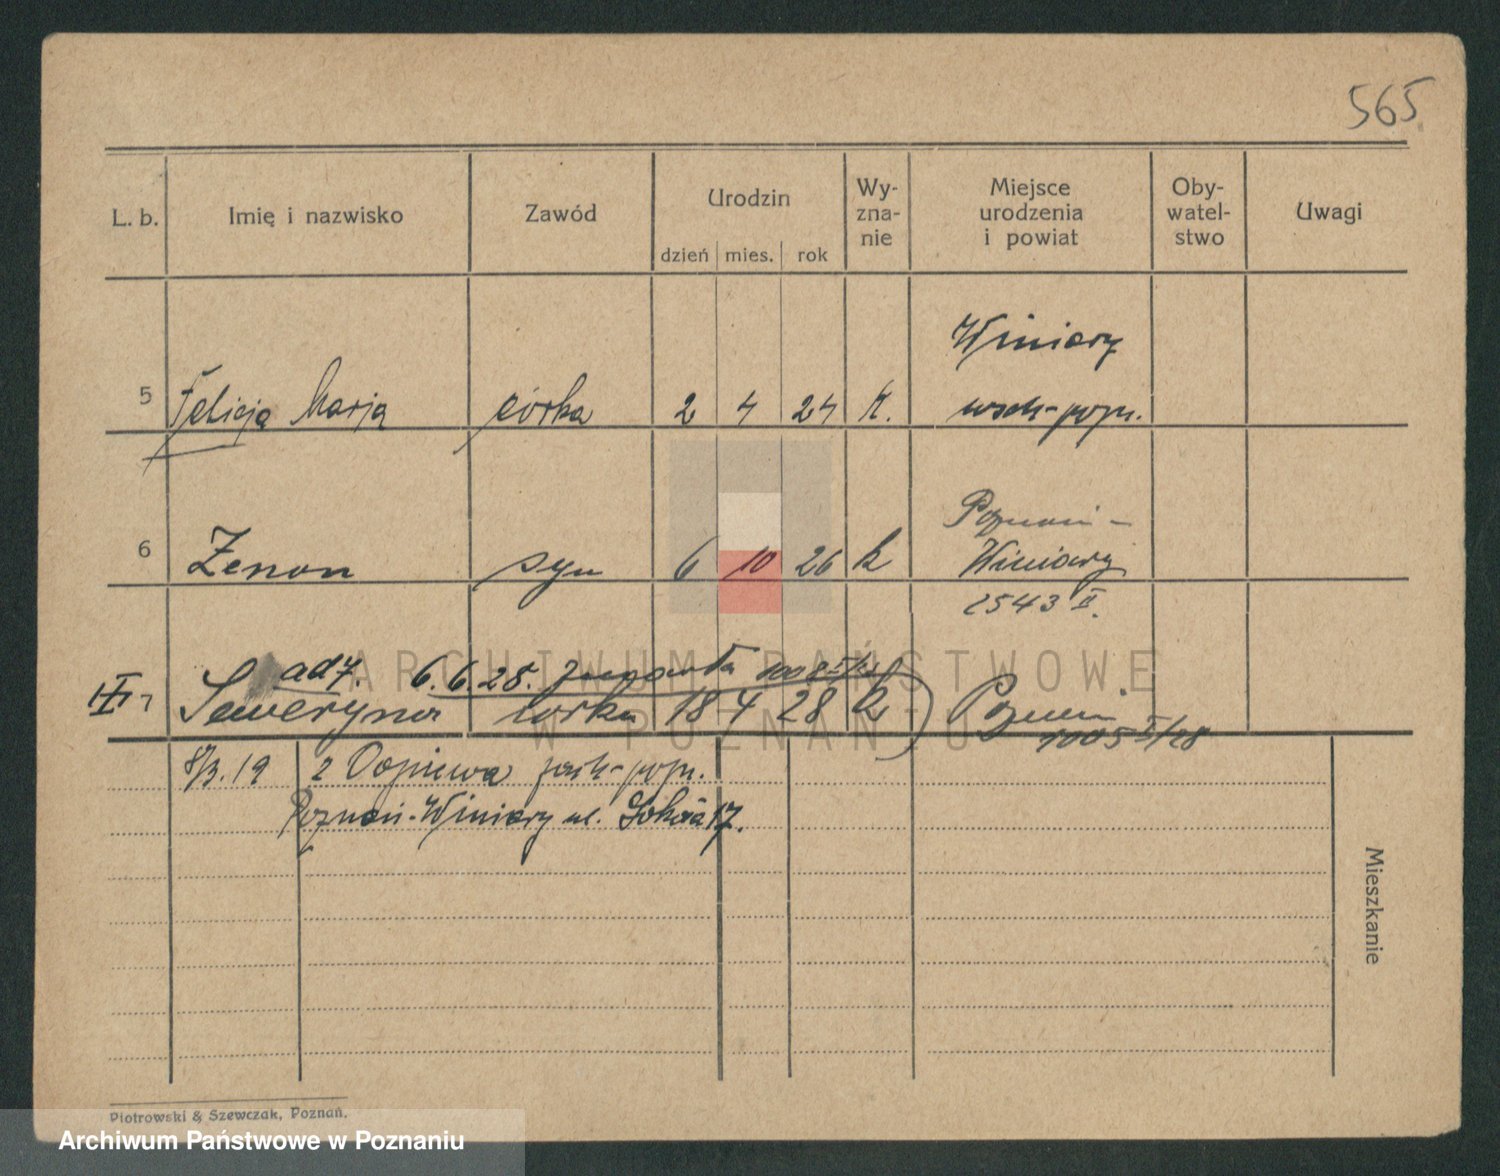 565
L. b. Imię i nazwisko Zawód Urodzin Wy-zna-nie Miejsce urodzenia i powiat Oby-watel-stwo Uwagi
dzień mies. rok
Winiary
5 Felicja Marja córka 2 4 24 k.
Poznań-
6 Zenon syn 6 10 26 k Winiary
2543 II.
ARCHIWUM PAŃSTWOWE
W POZNANIU
ad 7. 6.6.28.
7 Seweryna córka 18 4 28 k Poznań
1005 II/28
8/3.19 z Dopiewa
Poznań-Winiary ul. 17.
Mieszkanie
Piotrowski & Szewczak, Poznań.
Archiwum Państwowe w Poznaniu